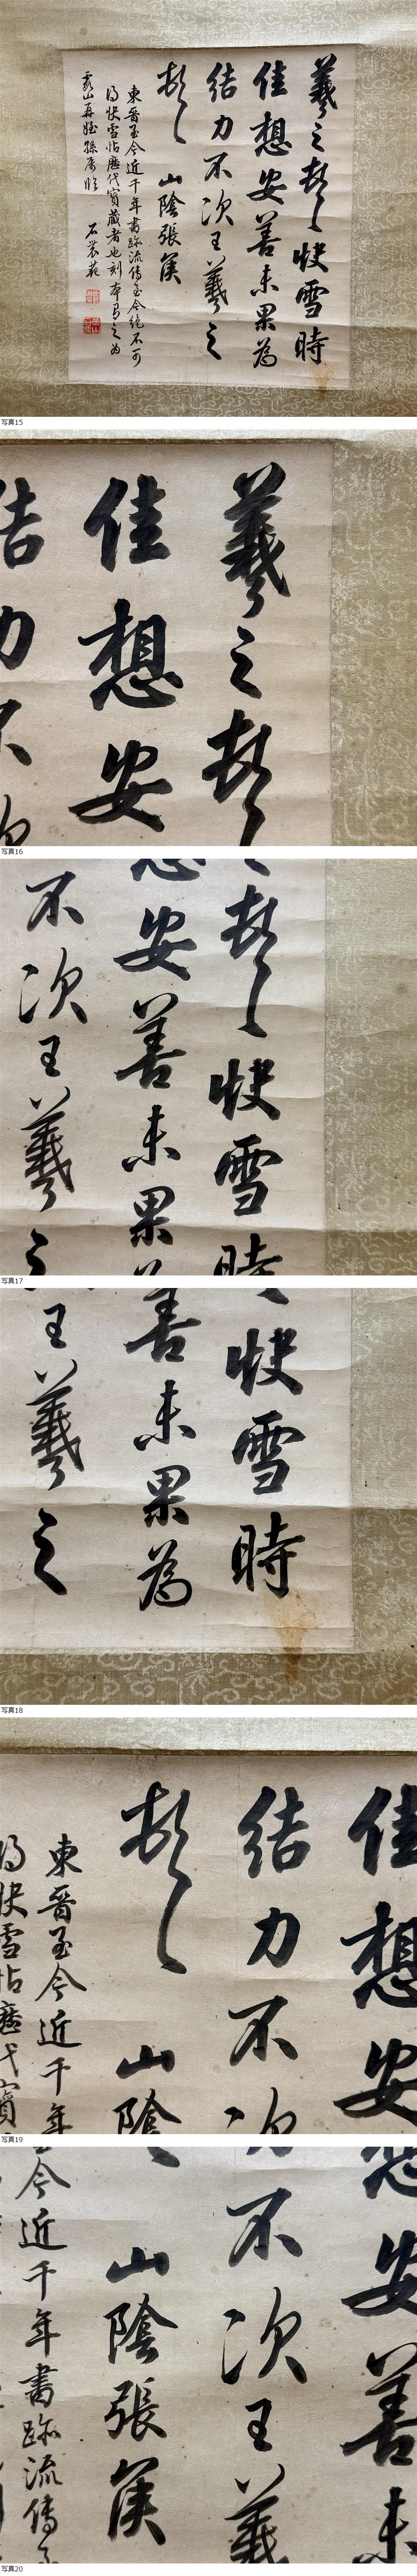 羲之頓首快雪時
佳想安善未果為
結力不次王羲之
頓首 山陰張侯
東晉至今近千年書跡流傳至今絕不可
得快雪帖歷代寶藏者也刻本有之為
山再姪孫 臨 石菴
写真15
羲之頓首
佳想安
結力不次
写真16
頓首快雪時
想安善未果為
不次王羲之
写真17
快雪時
善未果為
王羲之
写真18
佳想安
結力不次
頓首 山陰
東晉至今近千年
得快雪帖歷代寶
写真19
想安善未
不次王羲
山陰張侯
今近千年書跡流傳至
写真20